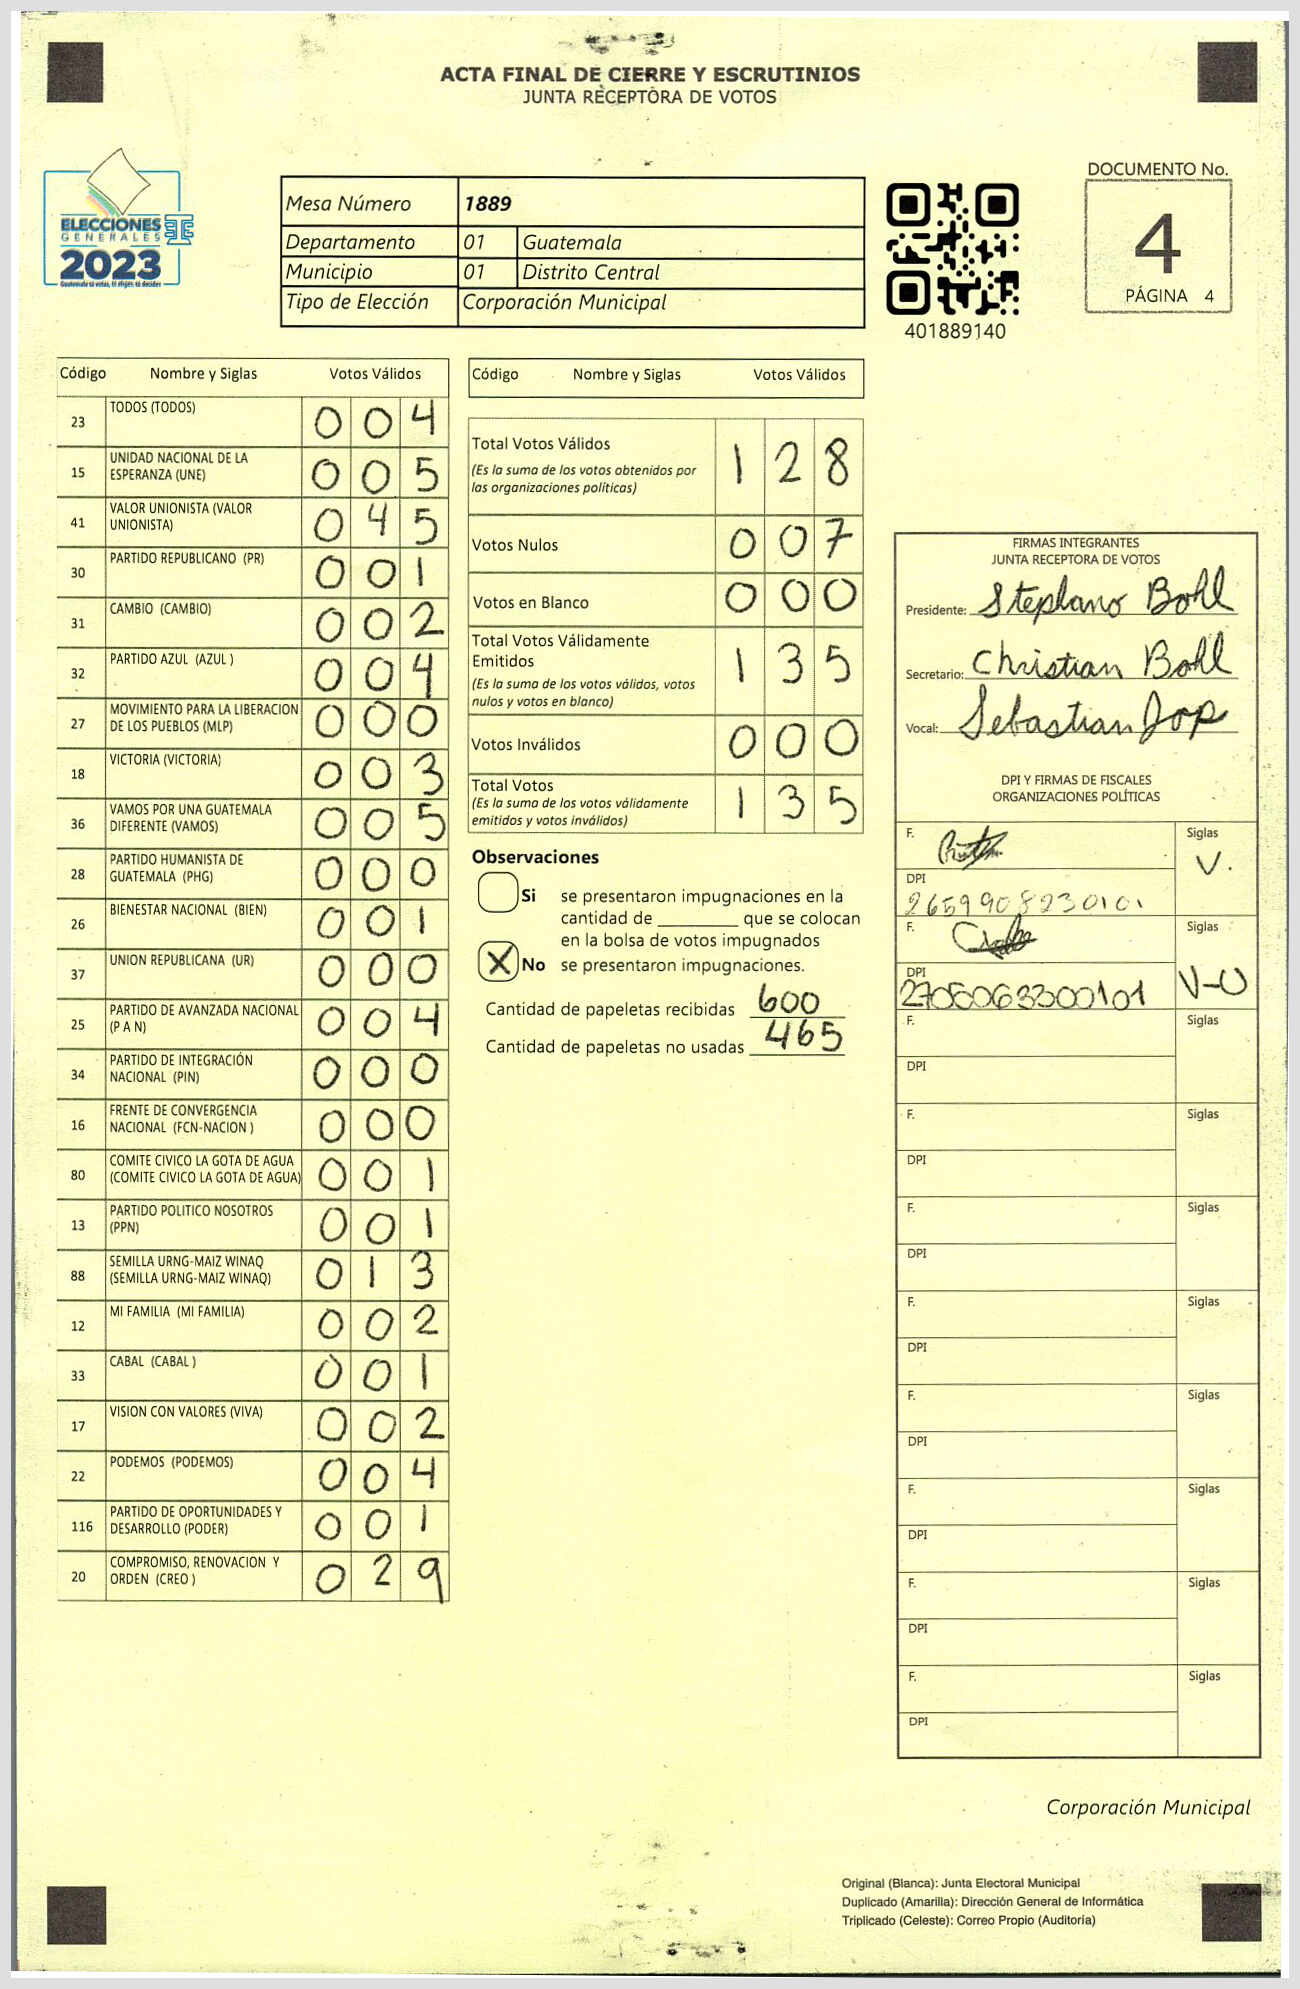 ACTA FINAL DE CIERRE Y ESCRUTINIOS
JUNTA RECEPTORA DE VOTOS
ELECCIONES
GENERALES
2023
Mesa Número 1889
Departamento 01 Guatemala
Municipio 01 Distrito Central
Tipo de Elección Corporación Municipal
401889140
DOCUMENTO No.
4
PÁGINA 4
Código Nombre y Siglas Votos Válidos
23 TODOS (TODOS) 0 0 4
15 UNIDAD NACIONAL DE LA
ESPERANZA (UNE) 0 0 5
41 VALOR UNIONISTA (VALOR
UNIONISTA) 0 4 5
30 PARTIDO REPUBLICANO (PR) 0 0 1
31 CAMBIO (CAMBIO) 0 0 2
32 PARTIDO AZUL (AZUL ) 0 0 4
27 MOVIMIENTO PARA LA LIBERACION
DE LOS PUEBLOS (MLP) 0 0 0
18 VICTORIA (VICTORIA) 0 0 3
36 VAMOS POR UNA GUATEMALA
DIFERENTE (VAMOS) 0 0 5
28 PARTIDO HUMANISTA DE
GUATEMALA (PHG) 0 0 0
26 BIENESTAR NACIONAL (BIEN) 0 0 1
37 UNION REPUBLICANA (UR) 0 0 0
25 PARTIDO DE AVANZADA NACIONAL
(P A N) 0 0 4
34 PARTIDO DE INTEGRACIÓN
NACIONAL (PIN) 0 0 0
16 FRENTE DE CONVERGENCIA
NACIONAL (FCN-NACION ) 0 0 0
80 COMITE CIVICO LA GOTA DE AGUA
(COMITE CIVICO LA GOTA DE AGUA) 0 0 1
13 PARTIDO POLITICO NOSOTROS
(PPN) 0 0 1
88 SEMILLA URNG-MAIZ WINAQ
(SEMILLA URNG-MAIZ WINAQ) 0 1 3
12 MI FAMILIA (MI FAMILIA) 0 0 2
33 CABAL (CABAL ) 0 0 1
17 VISION CON VALORES (VIVA) 0 0 2
22 PODEMOS (PODEMOS) 0 0 4
116 PARTIDO DE OPORTUNIDADES Y
DESARROLLO (PODER) 0 0 1
20 COMPROMISO, RENOVACION Y
ORDEN (CREO ) 0 2 9
Código Nombre y Siglas Votos Válidos
Total Votos Válidos 1 2 8
(Es la suma de los votos obtenidos por
las organizaciones políticas)
Votos Nulos 0 0 7
Votos en Blanco 0 0 0
Total Votos Válidamente
Emitidos 1 3 5
(Es la suma de los votos válidos, votos
nulos y votos en blanco)
Votos Inválidos 0 0 0
Total Votos 1 3 5
(Es la suma de los votos válidamente
emitidos y votos inválidos)
Observaciones
Si se presentaron impugnaciones en la
cantidad de ________ que se colocan
en la bolsa de votos impugnados
X No se presentaron impugnaciones.
Cantidad de papeletas recibidas 600
Cantidad de papeletas no usadas 465
FIRMAS INTEGRANTES
JUNTA RECEPTORA DE VOTOS
Presidente: Stephano Bohl
Secretario: Christian Bohl
Vocal: Sebastian Jop
DPI Y FIRMAS DE FISCALES
ORGANIZACIONES POLÍTICAS
F. Siglas
V.
DPI
2659908230101
F. Siglas
V-U
DPI
2705063300101
F. Siglas
DPI
F. Siglas
DPI
F. Siglas
DPI
F. Siglas
DPI
F. Siglas
DPI
F. Siglas
DPI
F. Siglas
DPI
F. Siglas
DPI
Corporación Municipal
Original (Blanca): Junta Electoral Municipal
Duplicado (Amarilla): Dirección General de Informática
Triplicado (Celeste): Correo Propio (Auditoría)